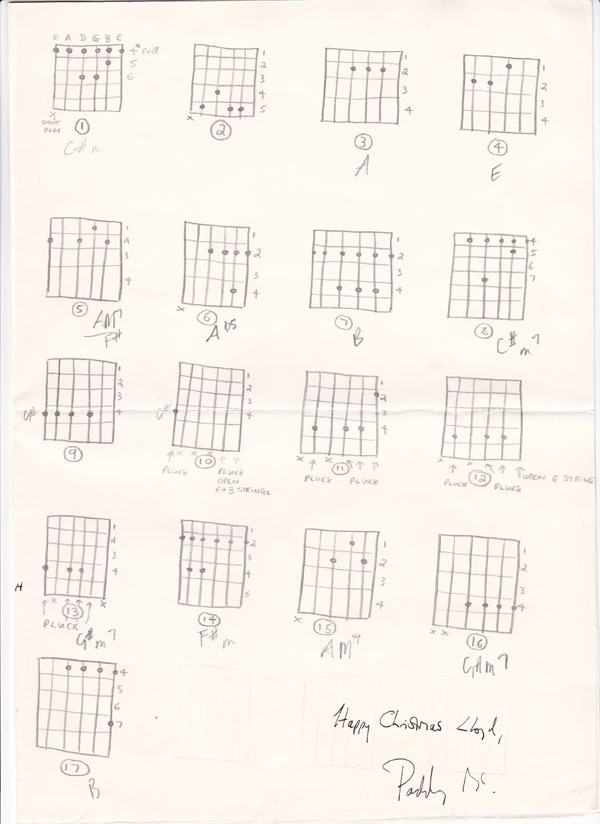 E A D G B E
4th Fret
5
6
x
DON'T
PLAY
1
C#m
1
2
3
4
5
x
2
1
2
3
4
3
A
1
2
3
4
4
E
1
2
3
4
5
AM7
F#
1
2
3
4
x
6
Ab5
1
2
3
4
7
B
4
5
6
7
8
C#m7
1
2
3
4
G#
9
1
2
3
4
G#
x x x
PLUCK
10
PLUCK
OPEN
E+B STRINGS
1
2
3
4
x x
11
PLUCK PLUCK
1
2
3
4
x x
PLUCK
12
PLUCK
OPEN E STRING
1
2
3
4
H
x x
13
PLUCK
G#m7
1
2
3
4
5
14
F#m
1
2
3
4
x
15
AM7
1
2
3
4
x x
16
G#m7
4
5
6
7
17
B
Happy Christmas Lloyd,
Paddy Mc.